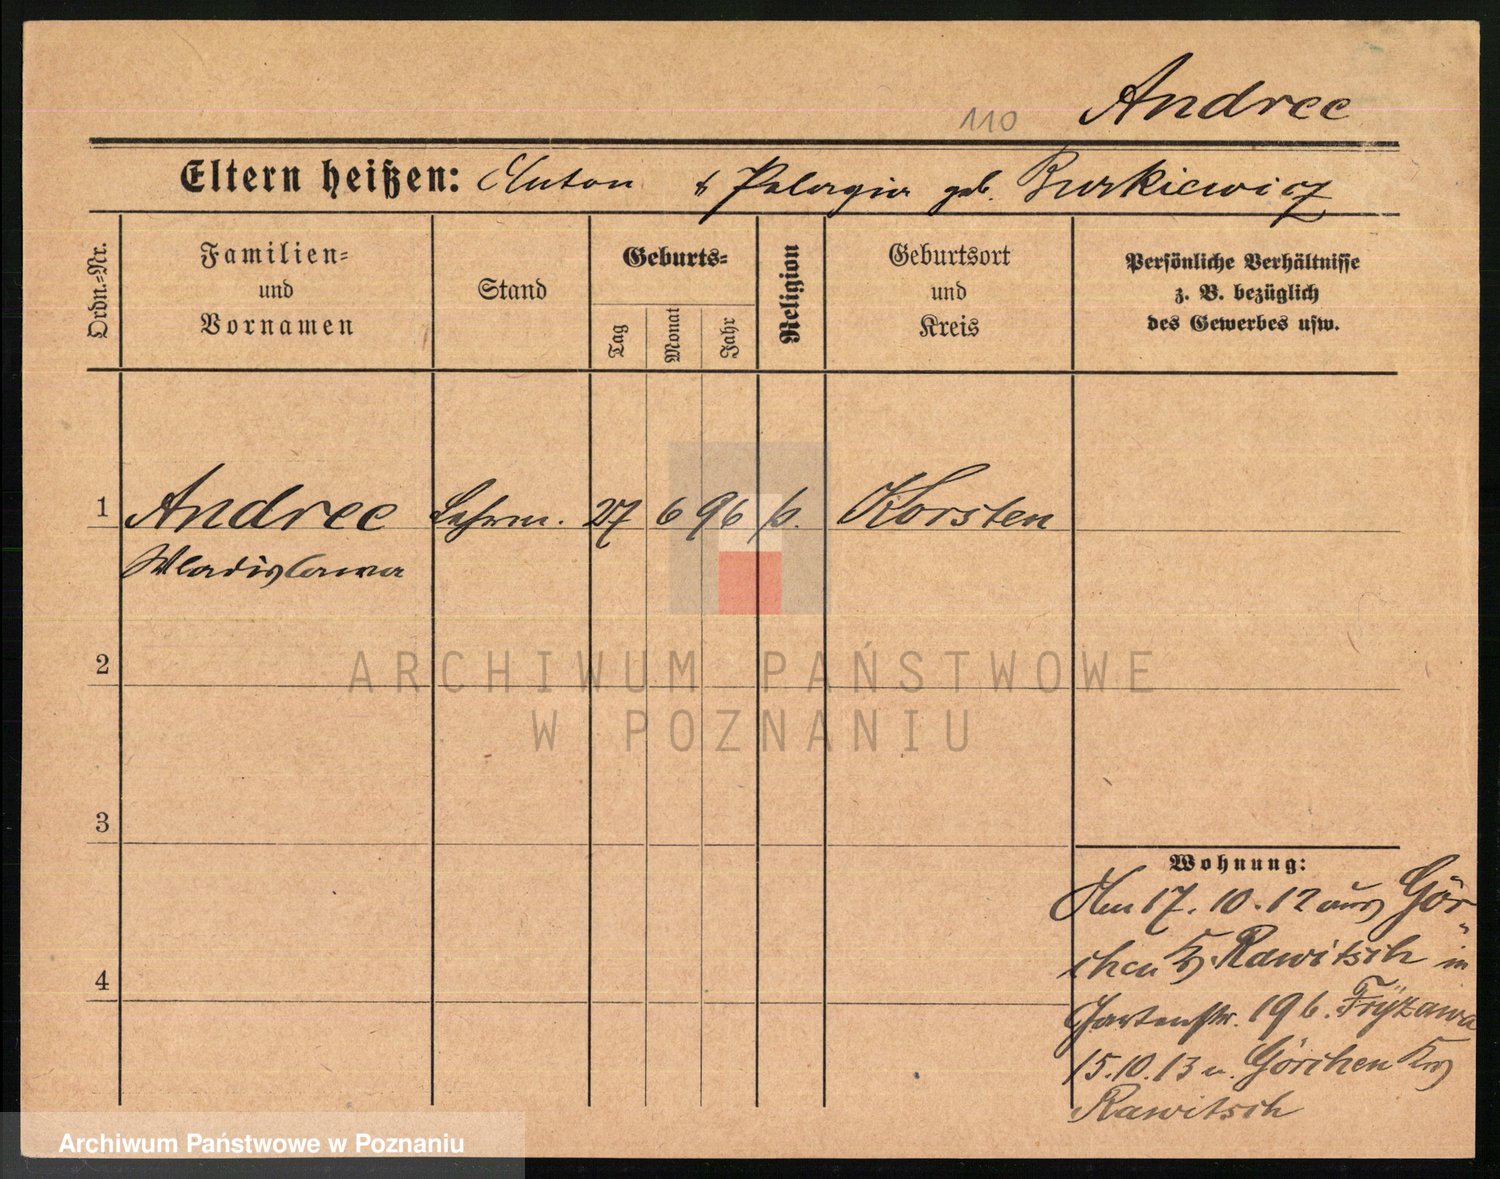 Andree
110
Eltern heißen: Anton u. Pelagia geb. Burkiewicz
Ordn.-Nr.
Familien-
und
Vornamen
Stand
Geburts-
Tag
Monat
Jahr
Religion
Geburtsort
und
Kreis
Persönliche Verhältnisse
z. B. bezüglich
des Gewerbes usw.
1 Andree Lehrm. 27 6 96 k. Korsten
Wladislawa
2
3
4
ARCHIWUM PAŃSTWOWE
W POZNANIU
Wohnung:
Am 17. 10. 12 aus Gör-
chen Krs. Rawitsch in
Gartenstr. 19 b. Fryzawa
15.10.13 n. Görchen Krs
Rawitsch
Archiwum Państwowe w Poznaniu